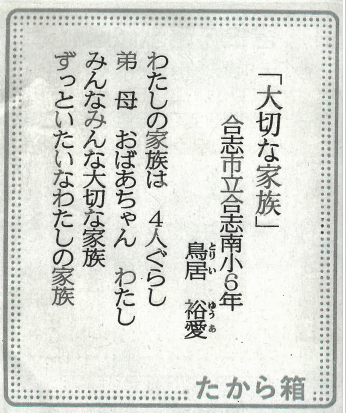 「大切な家族」
合志市立合志南小6年
鳥居 裕愛
とりい ゆうあ
わたしの家族は 4人ぐらし
弟 母 おばあちゃん わたし
みんなみんな大切な家族
ずっといたいなわたしの家族
たから箱